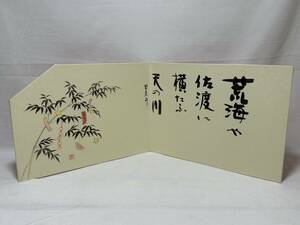 荒海や
佐渡に
横たふ
天の川